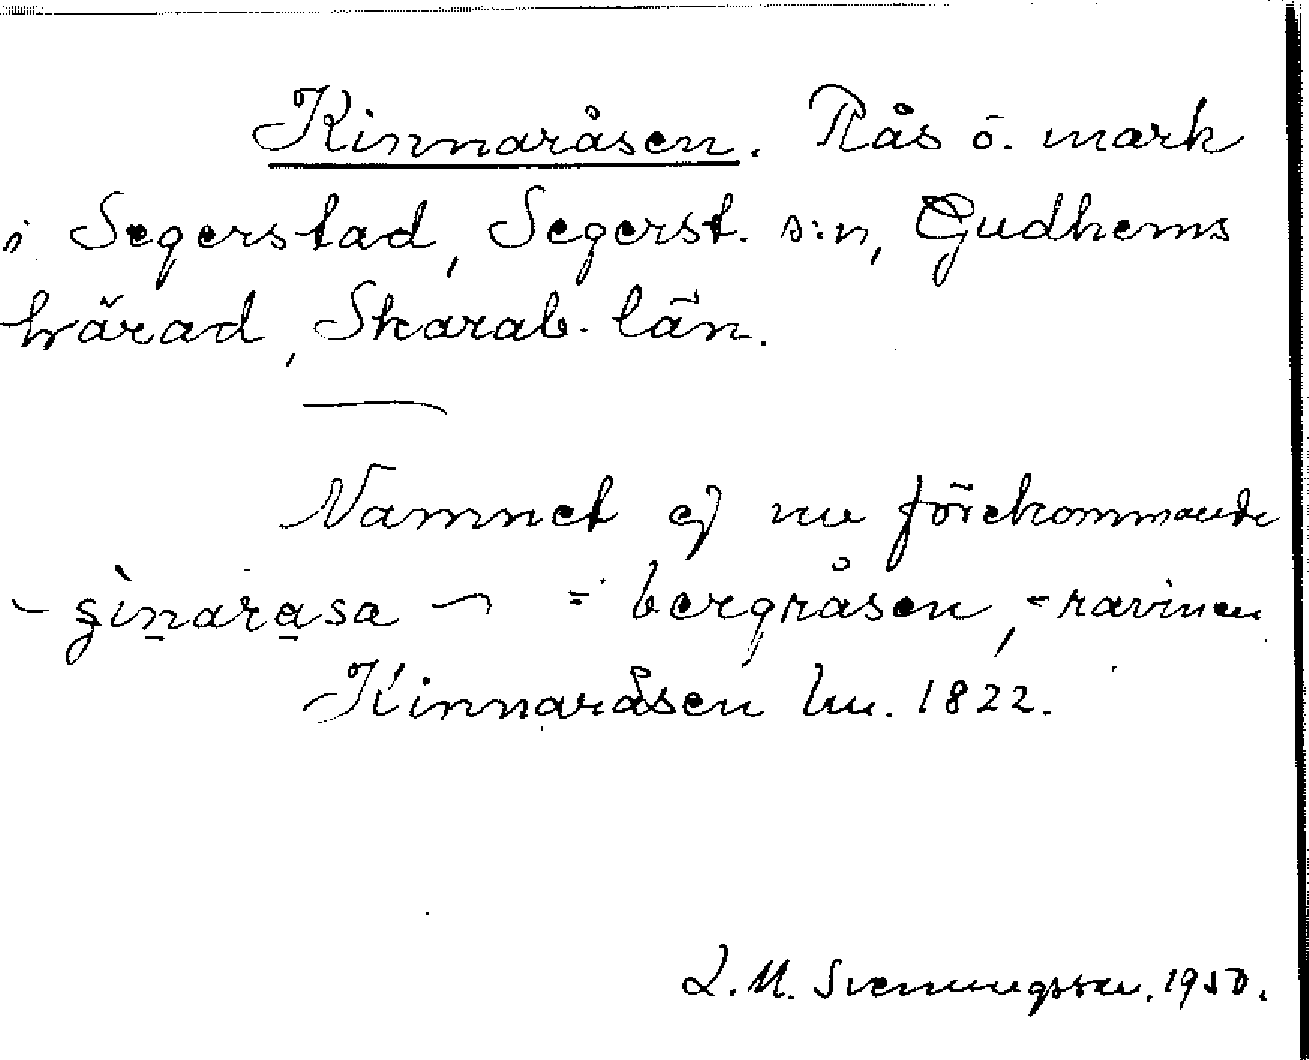 Kinnaråsen. Rås o. mark
i Segerstad, Segerst. s:n, Gudhems
härad, Skarab. län.
Namnet ej nu förekommande
- ʂìnarasa - = bergråsen, = ravinen
Kinnaråsen hu. 1822.
L. M. Svenungsson. 1950.